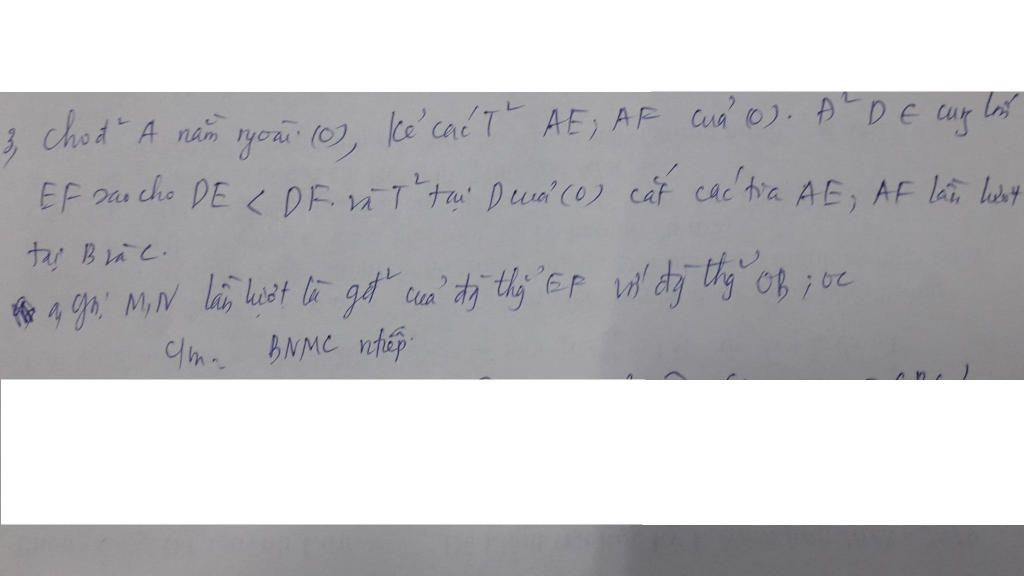 3, Cho đ² A nằm ngoài (O), kẻ các T² AE; AF của (O). Đ² D ∈ cung lớn
EF sao cho DE < DF. và T² tại D của (O) cắt các tia AE; AF lần lượt
tại B và C.
a, Gọi M, N lần lượt là gđ² của đg thg EF với đg thg OB ; OC
C/m: BNMC ntiếp.